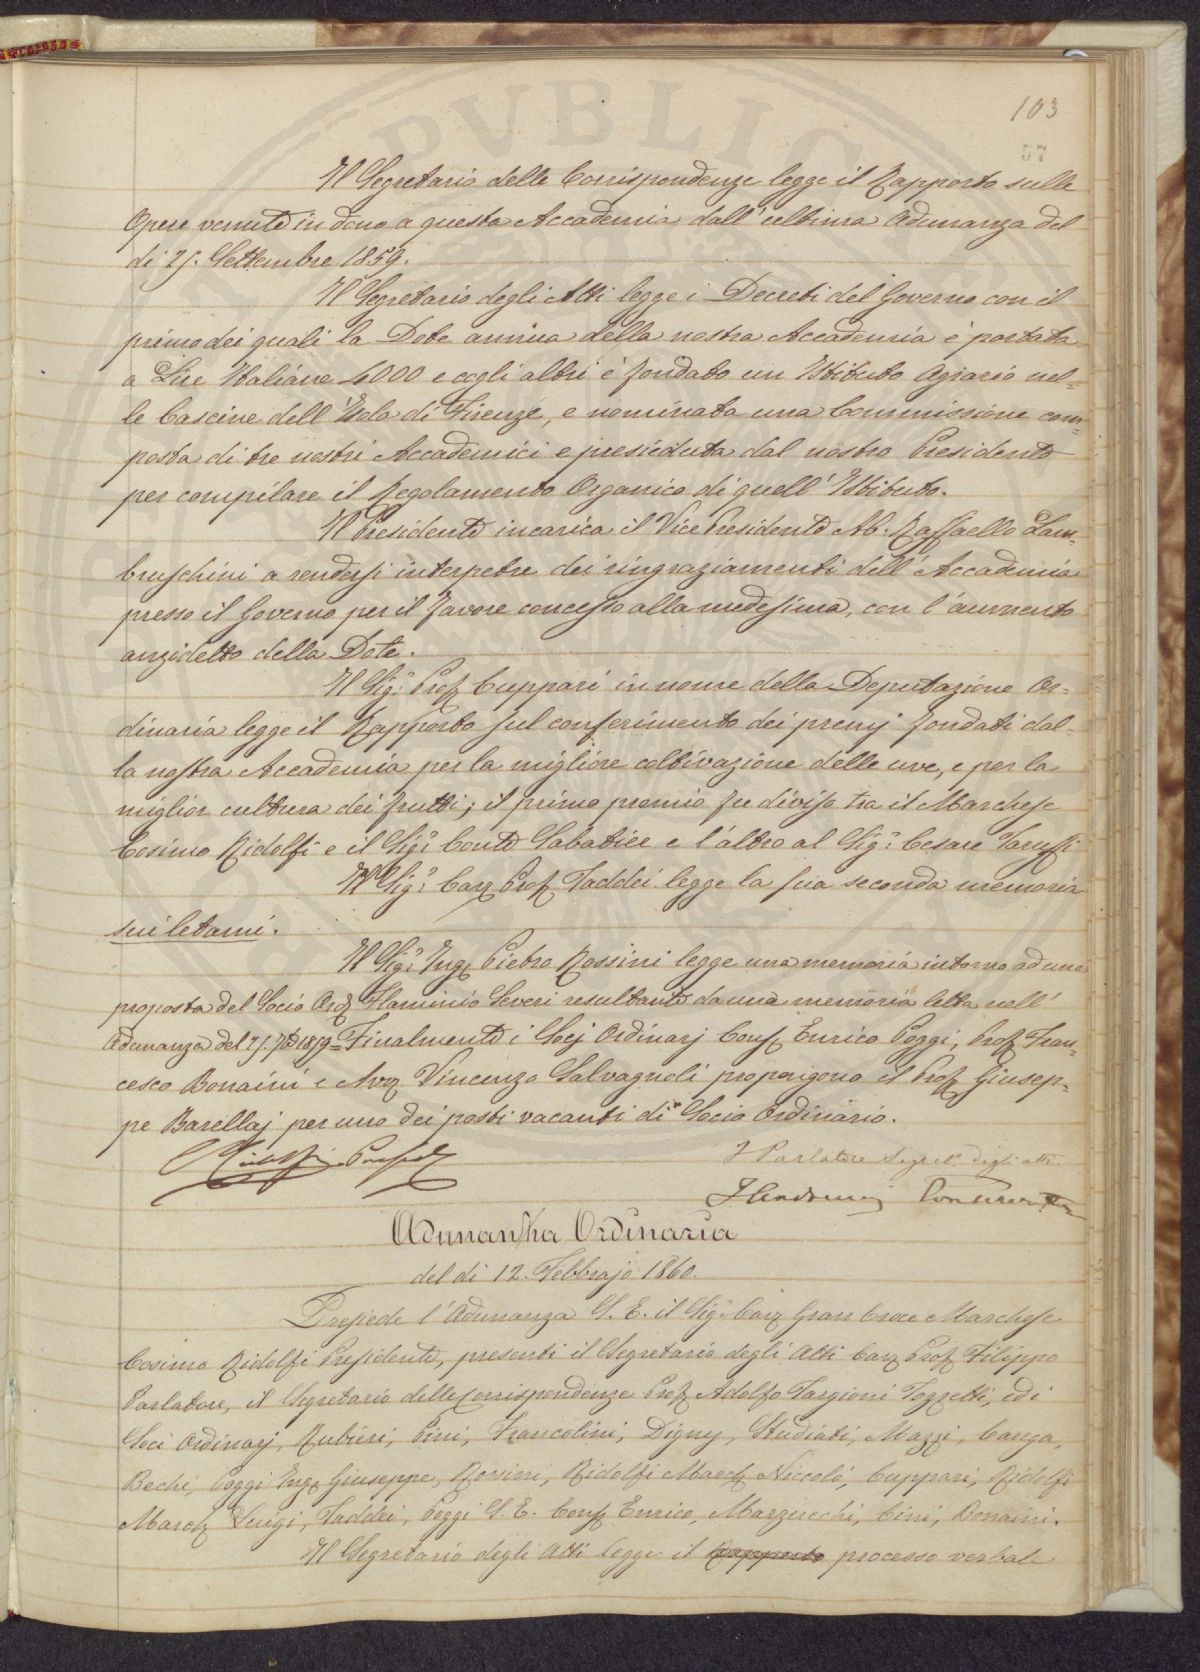 103
57
Il Segretario delle Corrispondenze legge il Rapporto sulle
Opere venute in dono a questa Accademia dall'ultima Adunanza del
di 25. Settembre 1859.
Il Segretario degli Atti legge i Decreti del Governo con il
primo dei quali la Dote annua della nostra Accademia è portata
a Lire Italiane 4000 e cogli altri è fondato un Istituto Agrario nel=
le Cascine dell'Isola di Firenze, e nominata una Commissione com=
posta di tre nostri Accademici e presieduta dal nostro Presidente
per compilare il Regolamento Organico di quell'Istituto.
Il Presidente incarica il Vice Presidente Ab. Raffaello Lam=
bruschini a rendersi interpetre dei ringraziamenti dell'Accademia
presso il Governo per il favore concesso alla medesima, con l'aumento
anzidetto della Dote.
Il Sigr. Prof. Cuppari in nome della Deputazione Or=
dinaria legge il Rapporto sul conferimento dei premj fondati dal=
la nostra Accademia per la migliore coltivazione delle uve, e per la
miglior cultura dei frutti; il primo premio fu diviso tra il Marchese
Cosimo Ridolfi e il Sigr. Conte Sabatier e l'altro al Sigr. Cesare Taruffi
Il Sigr. Cav. Prof. Taddei legge la sua seconda memoria
sui letami.
Il Sigr. Ing. Pietro Rossini legge una memoria intorno ad una
proposta del Socio Ord. Flaminio Severi resultante da una memoria letta nell'
Adunanza del 25. 7bre 1859= Finalmente i Socj Ordinarj Cons. Enrico Poggi, Prof. Fran=
cesco Bonaini e Avv. Vincenzo Salvagnoli propongono il Prof. Giusep=
pe Barellaj per uno dei posti vacanti di Socio Ordinario.
C Ridolfi Presid.
F Parlatore Segret. degli atti
Adunanza Ordinaria
del di 12. Febbrajo 1860.
Presiede l'Adunanza S. E. il Sigr. Cav. Gran Croce Marchese
Cosimo Ridolfi Presidente, presenti il Segretario degli Atti Cav. Prof. Filippo
Parlatore, il Segretario delle Corrispondenze Prof. Adolfo Targioni Tozzetti, ed i
Soci Ordinarj, Rubieri, Pini, Francolini, Digny, Studiati, Mazzi, Carega,
Bechi, Poggi Ing. Giuseppe, Rossini, Ridolfi March. Niccolò, Cuppari, Ridolfi
March. Luigi, Taddei, Poggi S. E. Cons. Enrico, Marzucchi, Cini, Bonaini.
Il Segretario degli Atti legge il Rapporto processo verbale